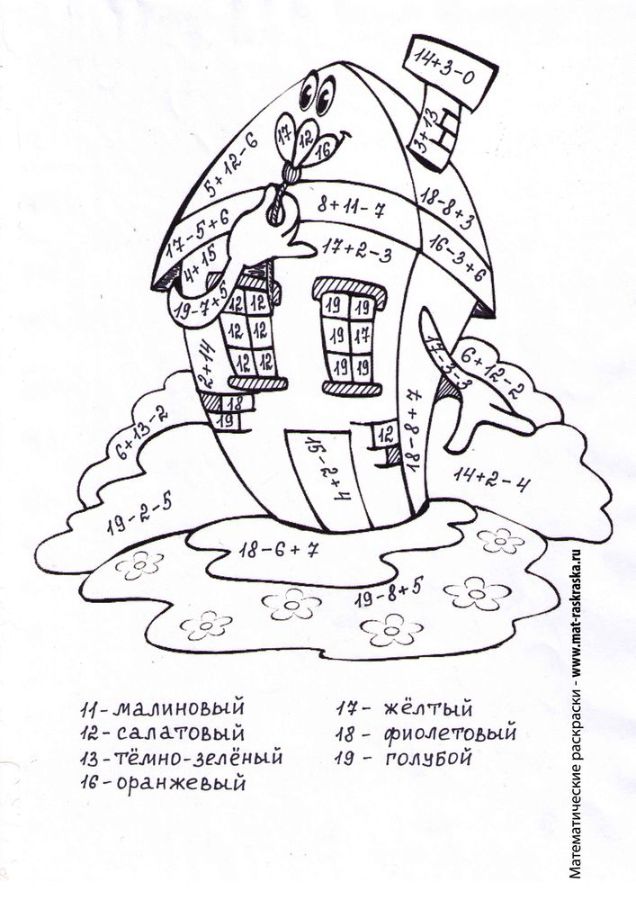 14+3-0
3+13
17
12
16
5+12-6
8+11-7
18-8+3
17-5+6
17+2-3
16-3+6
4+15
19-7+5
12 12
12 12
12 12
19 19
19 17
19 19
2+14
17-3-3
6+12-2
18
19
12
6+13-2
15-2+4
18-8+7
14+2-4
19-2-5
18-6+7
19-8+5
11-малиновый
12-салатовый
13-тёмно-зелёный
16-оранжевый
17- жёлтый
18 - фиолетовый
19 - голубой
Математические раскраски - www.mat-raskraska.ru